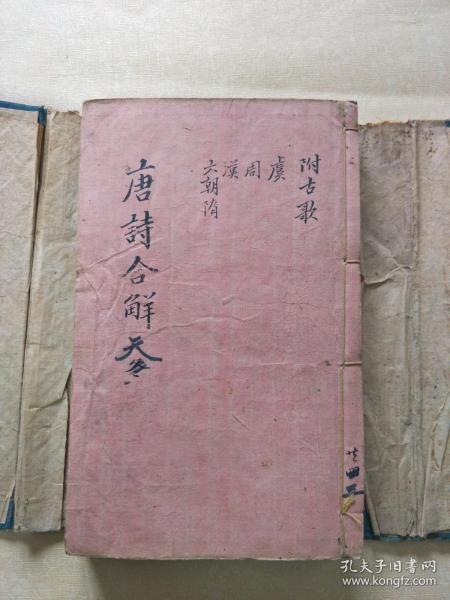 附古歌
虞
周
漢
六朝隋
唐詩合解
四
孔夫子旧书网
www.kongfz.com